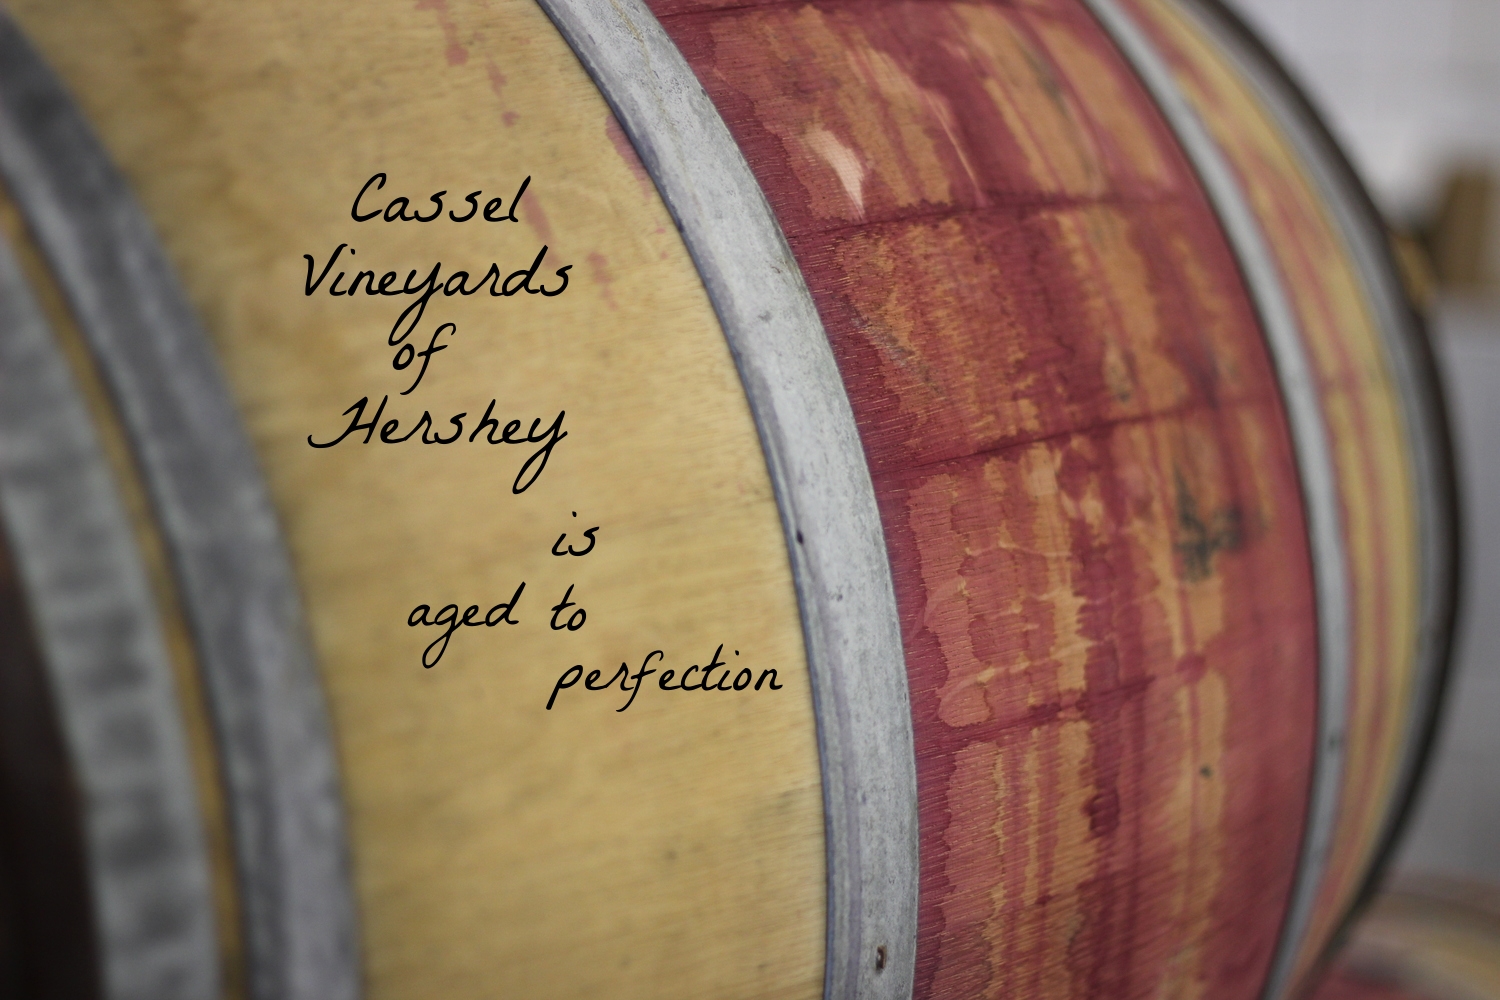 Cassel
Vineyards
of
Hershey
is
aged to
perfection